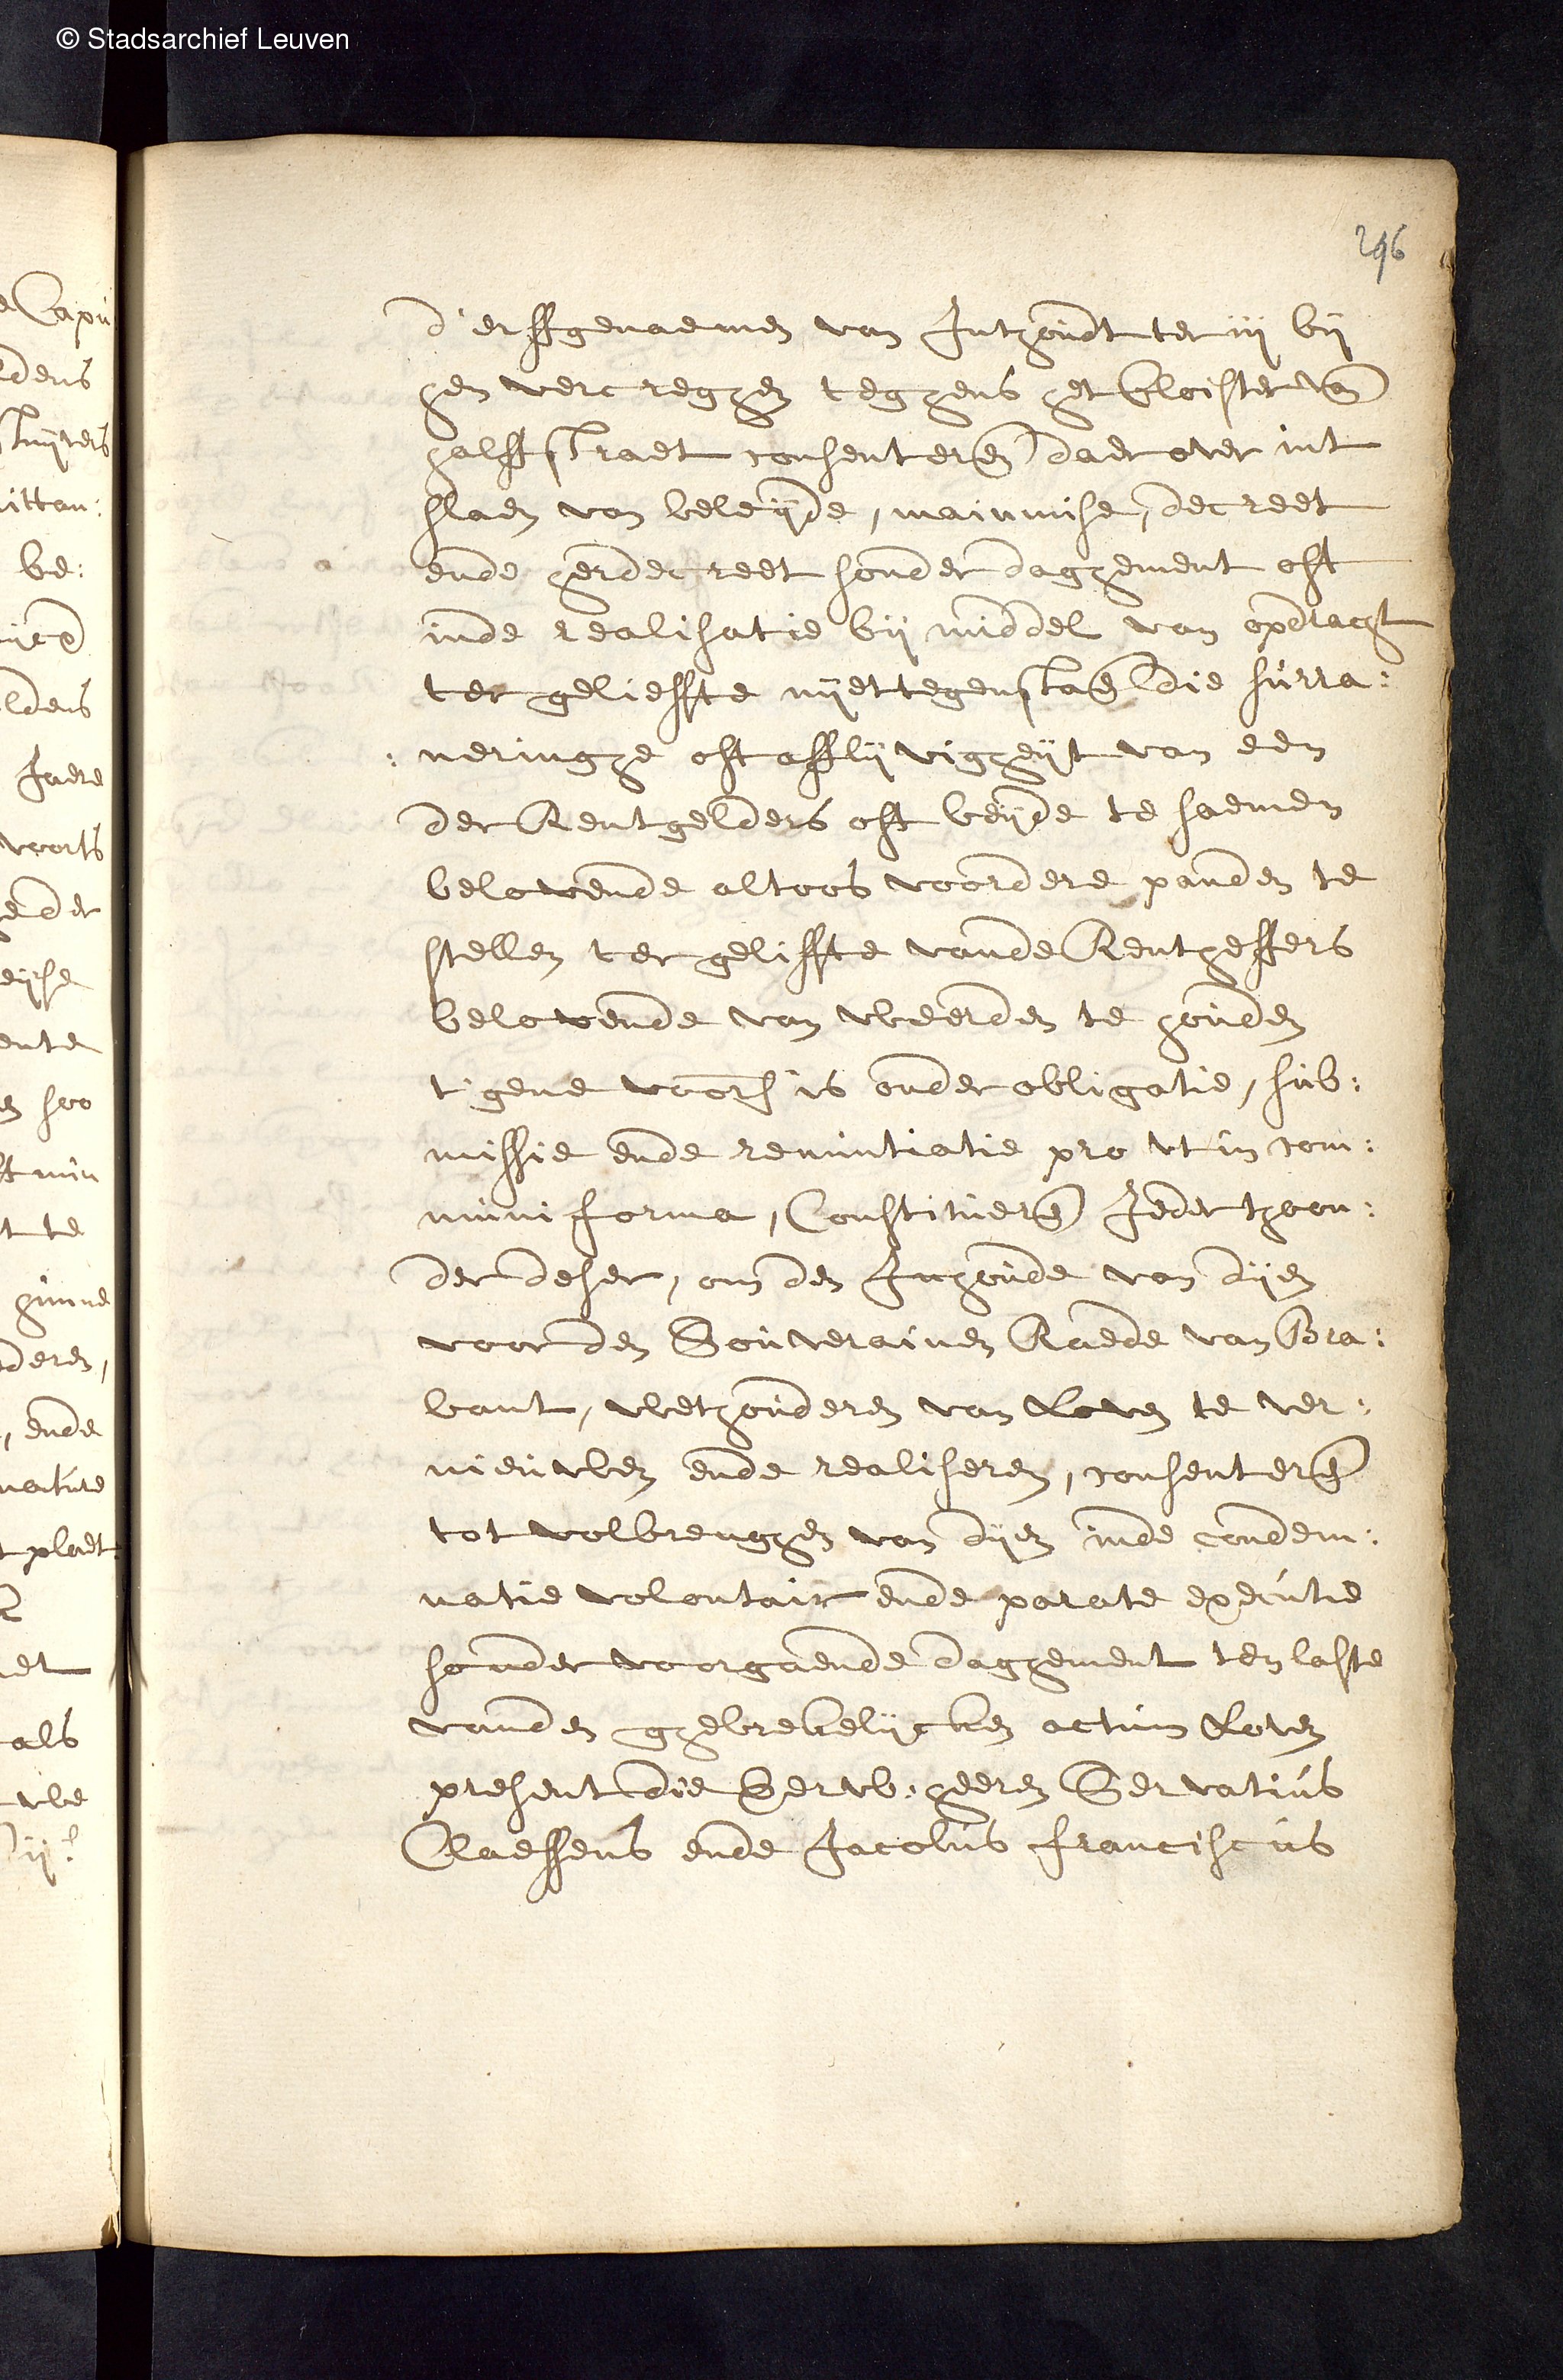 © Stadsarchief Leuven
296
d'erffgenaemen van
hen vercregghen teghens het Cloister van
halffstraet consenteren daer over int
slaen van beleijde, mainmise, decreet
ende herdecreet sonder daghement oft
inde realisatie bij middel van opdracht
ter gelieffte nijettegenstaen die surra:
: neringhe oft afflijvigheijt van een
der Rentgelders oft beijde te saemen
belovende altoos voordere panden te
stellen ter geliffte vande Rentheffers
belovende van weerden te houden
t'gene voors is onder obligatie, sub:
missie ende renuntiatie pro ut in com:
muni forma, Constitueren Jeder thoon:
der deser, om den Inhoude van dijen
voor den Souverainen Raede van Bra:
bant, wethouderen van Loven te ver:
nieuwen ende realiseren, consenteren
tot volbrenghen van dijen inde condem:
natie volontair ende parate executie
sonder voorgaende daghement ten laste
vanden ghebrekelijcken actum Loven
present die Eerw. heeren Servatius
Claessens ende Jacobus franciscus
Capu
ldens
be:
ldens
Jaere
voorts
ende
soo
als